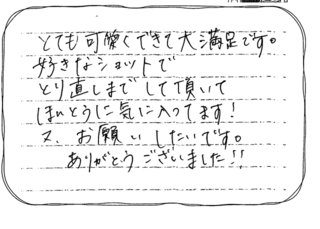 とても可愛くできて大満足です。
好きなショットで
とり直しまでして頂いて
ほんとうに気に入ってます!
又、お願いしたいです。
ありがとうございました!!